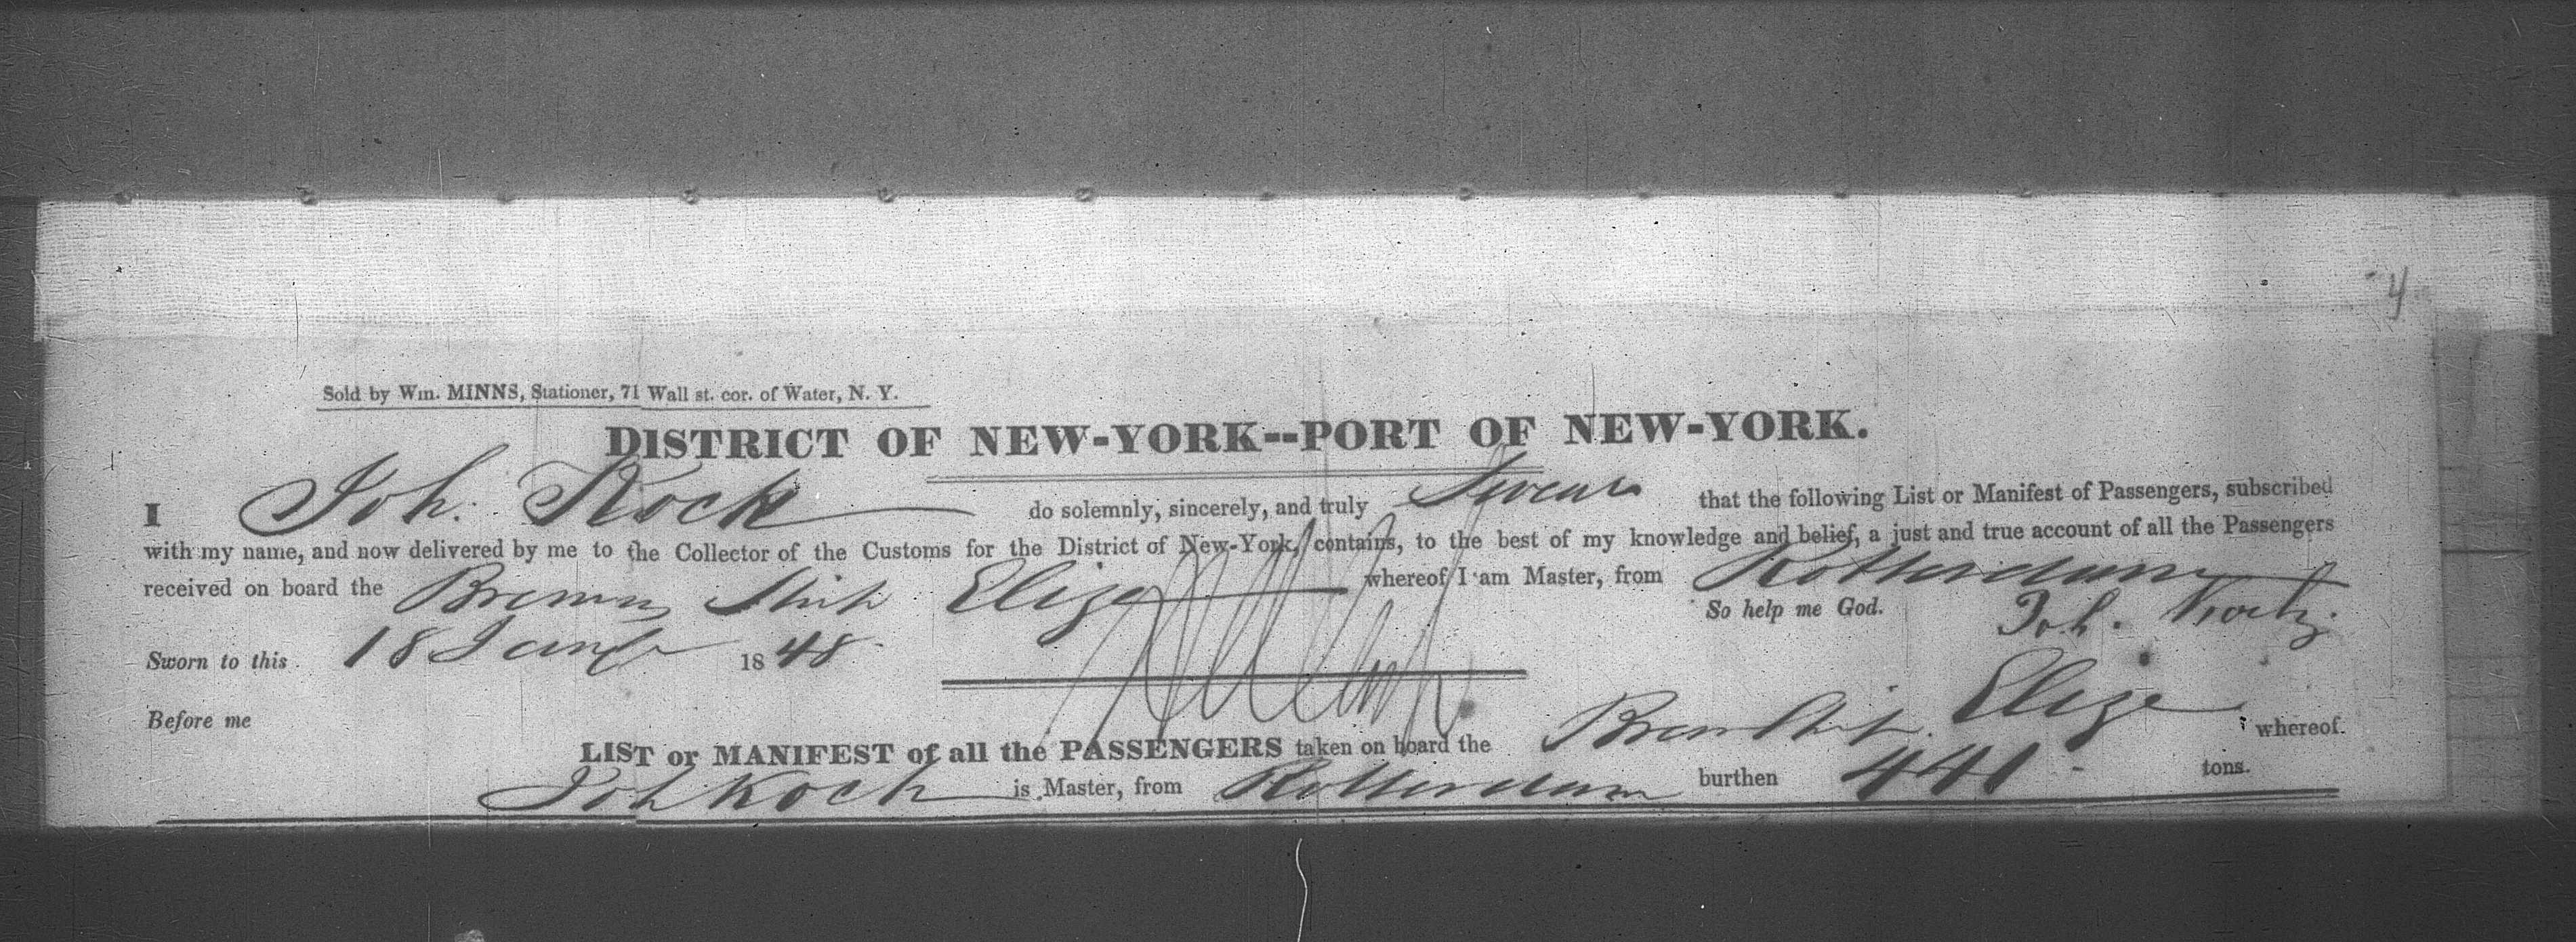 4
Sold by Wm. MINNS, Stationer, 71 Wall st. cor. of Water, N. Y.
DISTRICT OF NEW-YORK--PORT OF NEW-YORK.
I Joh. Kock do solemnly, sincerely, and truly Swear that the following List or Manifest of Passengers, subscribed
with my name, and now delivered by me to the Collector of the Customs for the District of New-York, contains, to the best of my knowledge and belief, a just and true account of all the Passengers
received on board the Bremen Ship Elize whereof I am Master, from Rotterdam
So help me God. Joh. Koch
Sworn to this 18 1848
Before me
LIST or MANIFEST of all the PASSENGERS taken on board the Brem Ship Elize whereof
Joh Koch is Master, from Rotterdam burthen 441 tons.